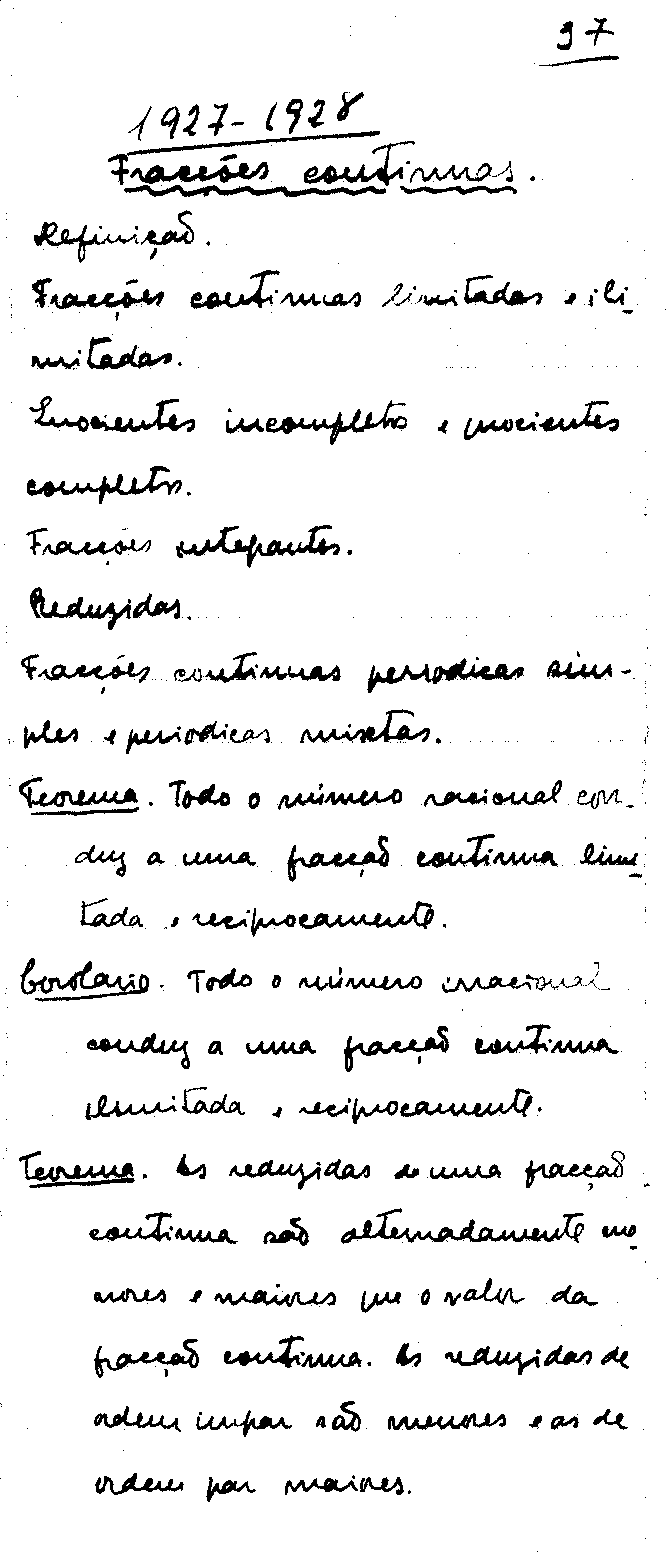 97
1927-1928
Fracções continuas.
Definição.
Fracções continuas limitadas e ili-
mitadas.
Quocientes incompletos e quocientes
completos.
Fracções integrantes.
Reduzidas.
Fracções continuas periodicas sim-
ples e periodicas mixtas.
Teorema. Todo o número racional con-
duz a uma fracção continua limi-
tada e reciprocamente.
Corolario. Todo o número irracional
conduz a uma fracção continua
ilimitada e reciprocamente.
Teorema. As reduzidas de uma fracção
continua são alternadamente me-
nores e maiores que o valor da
fracção continua. As reduzidas de
ordem impar são menores e as de
ordem par maiores.